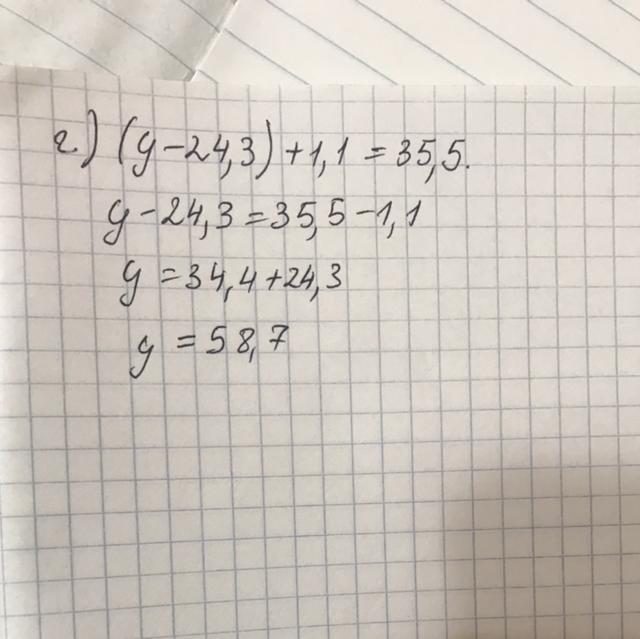 г) (y-24,3)+1,1=35,5.
y-24,3=35,5-1,1
y=34,4+24,3
y=58,7